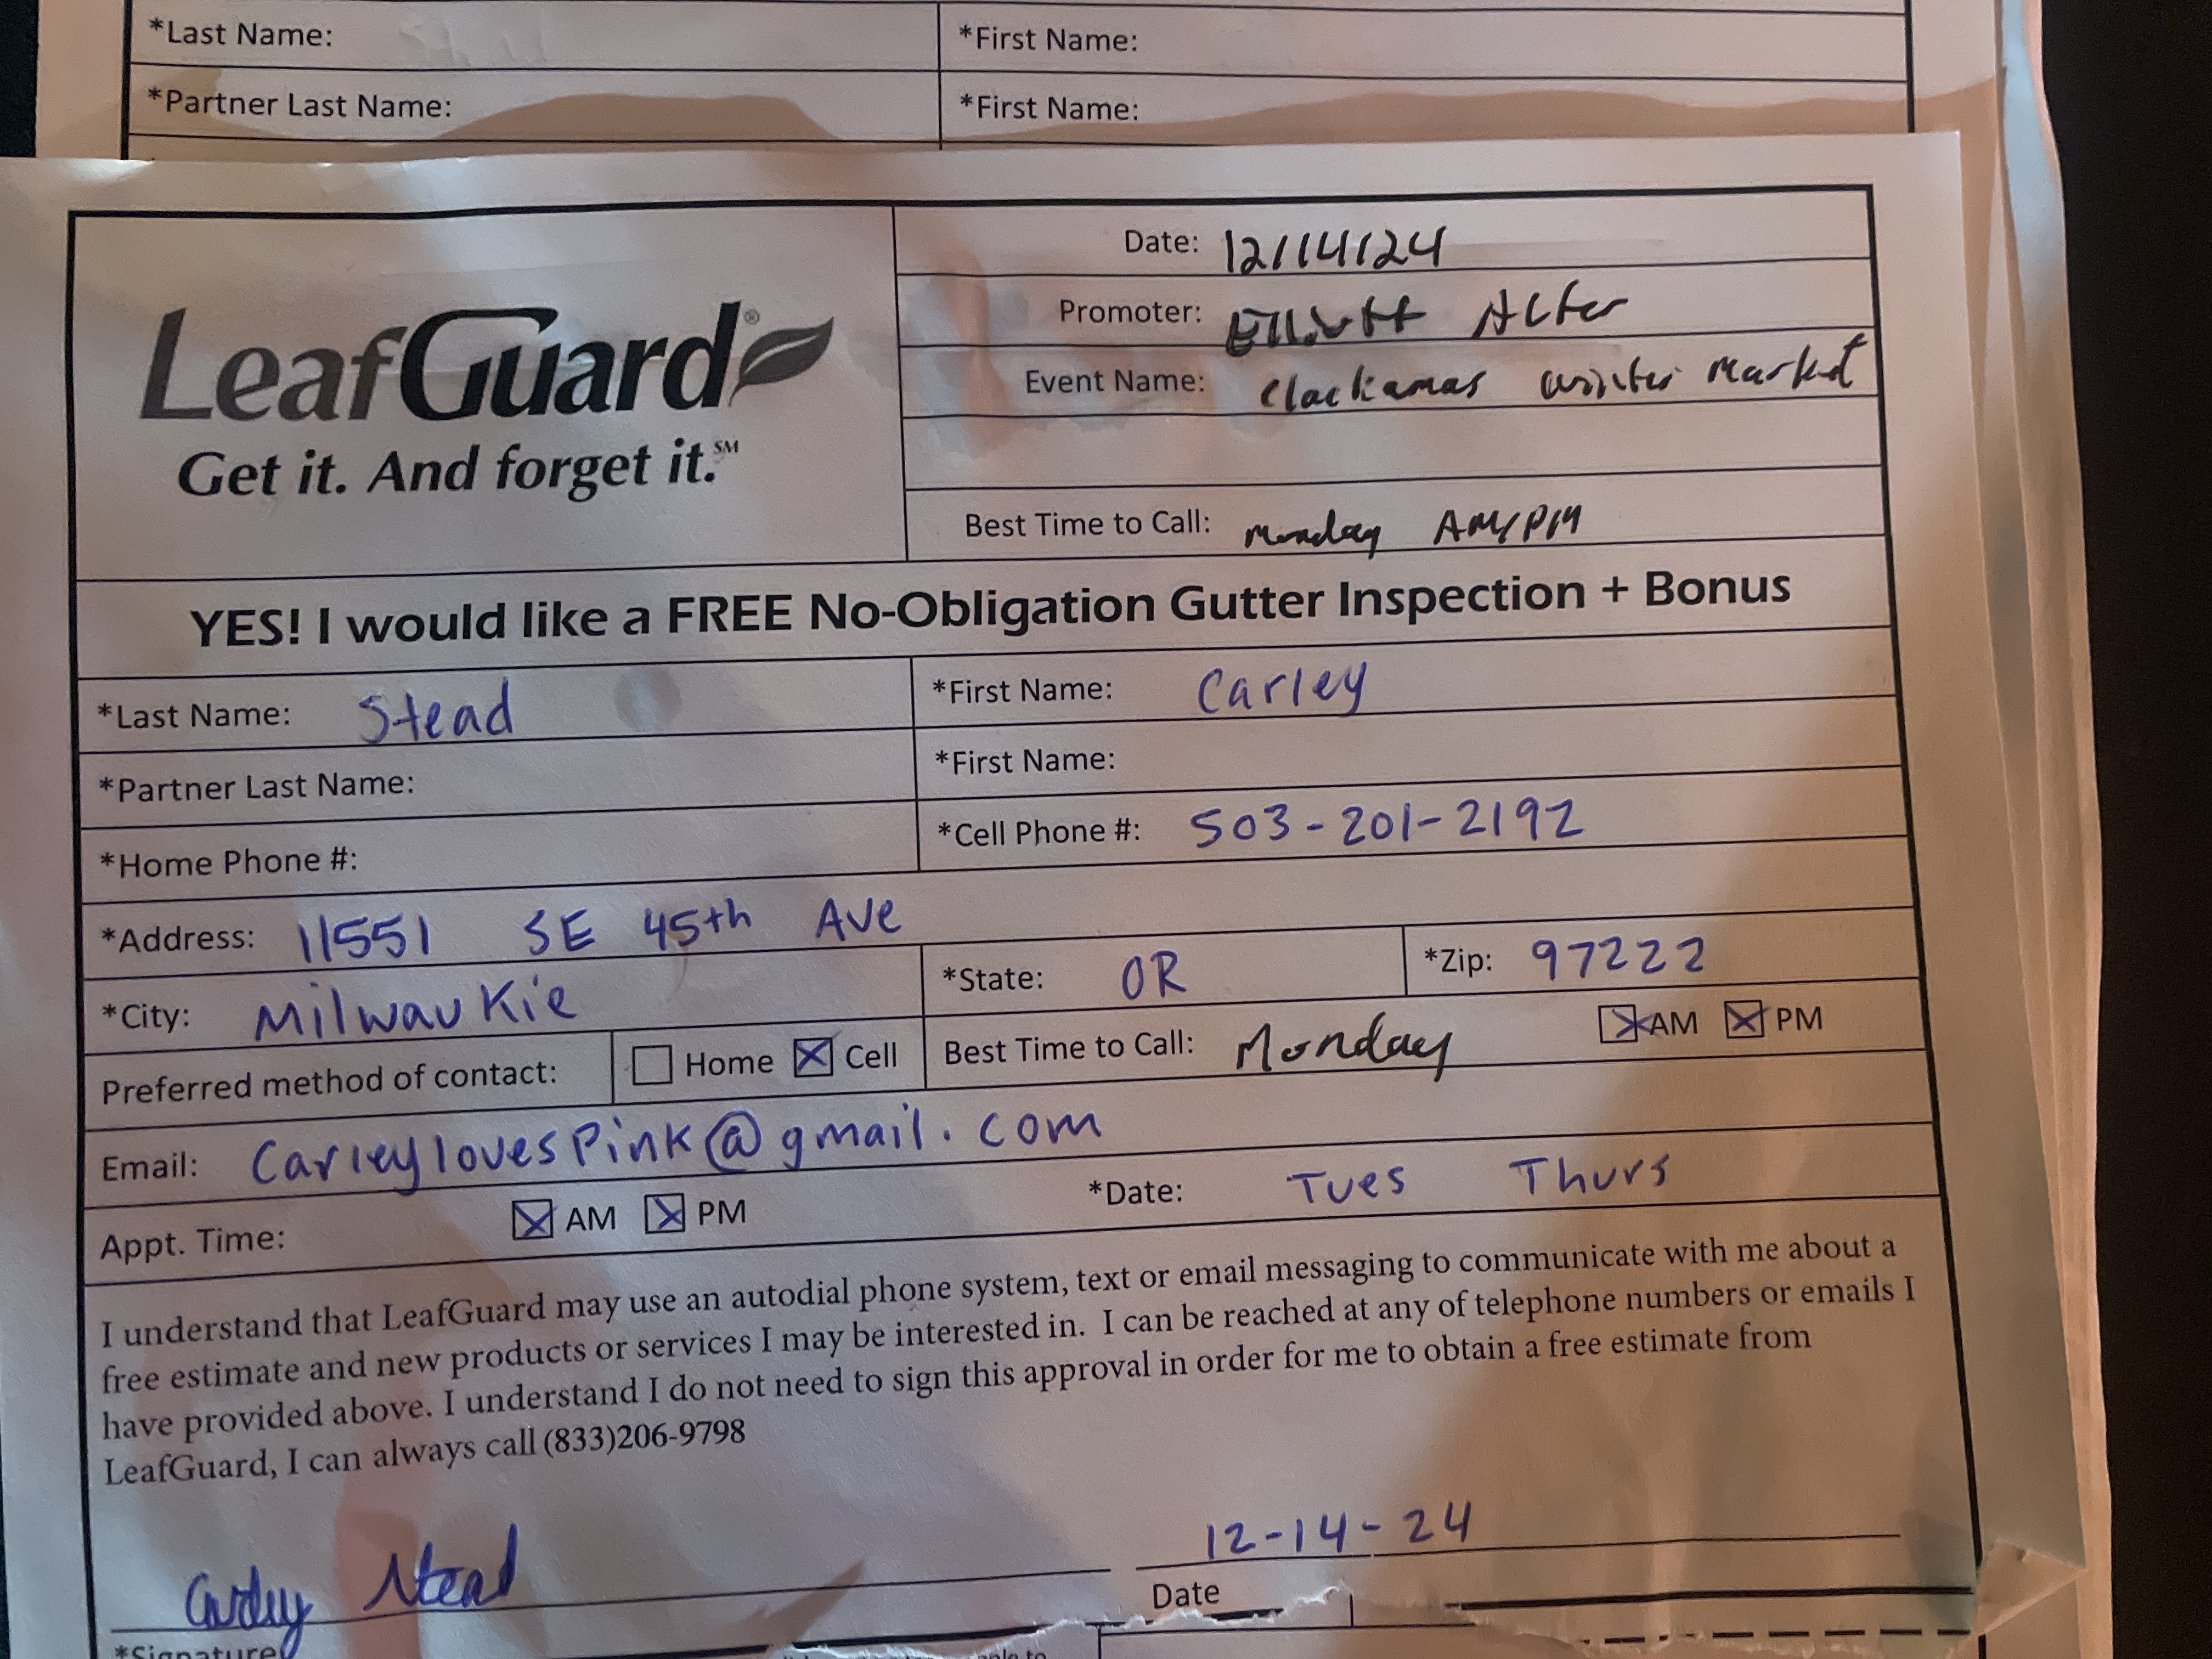 *Last Name: *First Name:
*Partner Last Name: *First Name:
LeafGuard®
Get it. And forget it.℠
Date: 12/14/24
Promoter: Elliott Alter
Event Name: clackamas winter market
Best Time to Call: monday AM/PM
YES! I would like a FREE No-Obligation Gutter Inspection + Bonus
*Last Name: Stead *First Name: Carley
*Partner Last Name: *First Name:
*Home Phone #: *Cell Phone #: 503-201-2192
*Address: 11551 SE 45th Ave
*City: Milwaukie *State: OR *Zip: 97222
Preferred method of contact: ☐ Home ☒ Cell Best Time to Call: Monday ☒ AM ☒ PM
Email: CarleylovesPink@gmail.com
Appt. Time: ☒ AM ☒ PM *Date: Tues Thurs
I understand that LeafGuard may use an autodial phone system, text or email messaging to communicate with me about a
free estimate and new products or services I may be interested in. I can be reached at any of telephone numbers or emails I
have provided above. I understand I do not need to sign this approval in order for me to obtain a free estimate from
LeafGuard, I can always call (833)206-9798
Carley Stead 12-14-24
*Signature Date